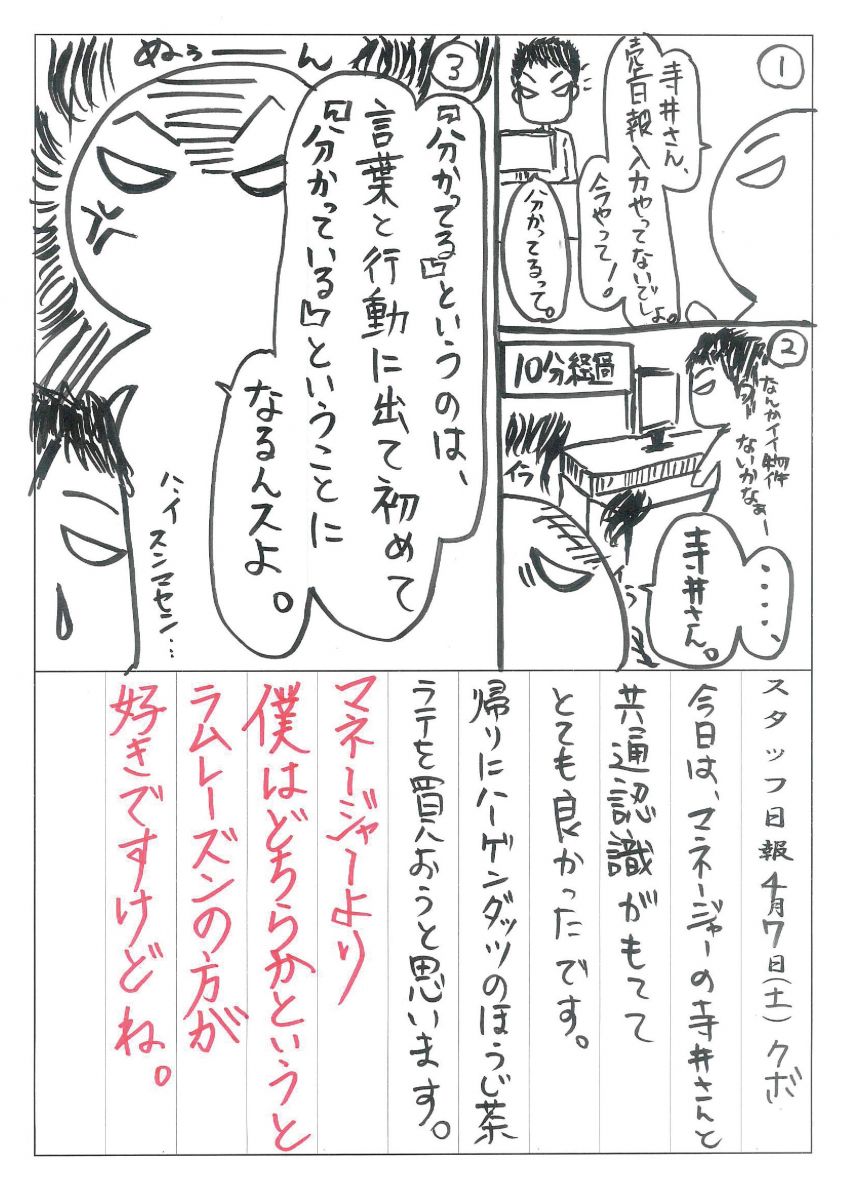 ①
寺井さん、
売日報入力やってないでしょ。
今やって!。
分かってるって。
②
10分経過
なんかイイ物件
ないかなぁー
イラ
イラ
・・・・、
寺井さん。
③
ぬぅーーん
『分かってる』というのは、
言葉と行動に出て初めて
『分かっている』ということに
なるんスよ。
ハイ
スンマセン…
スタッフ日報4月7日(土)クボ
今日は、マネージャーの寺井さんと
共通認識がもてて
とても良かったです。
帰りにハーゲンダッツのほうじ茶
ラテを買おうと思います。
マネージャーより
僕はどちらかというと
ラムレーズンの方が
好きですけどね。